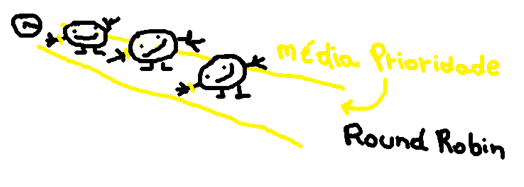 média Prioridade
Round Robin